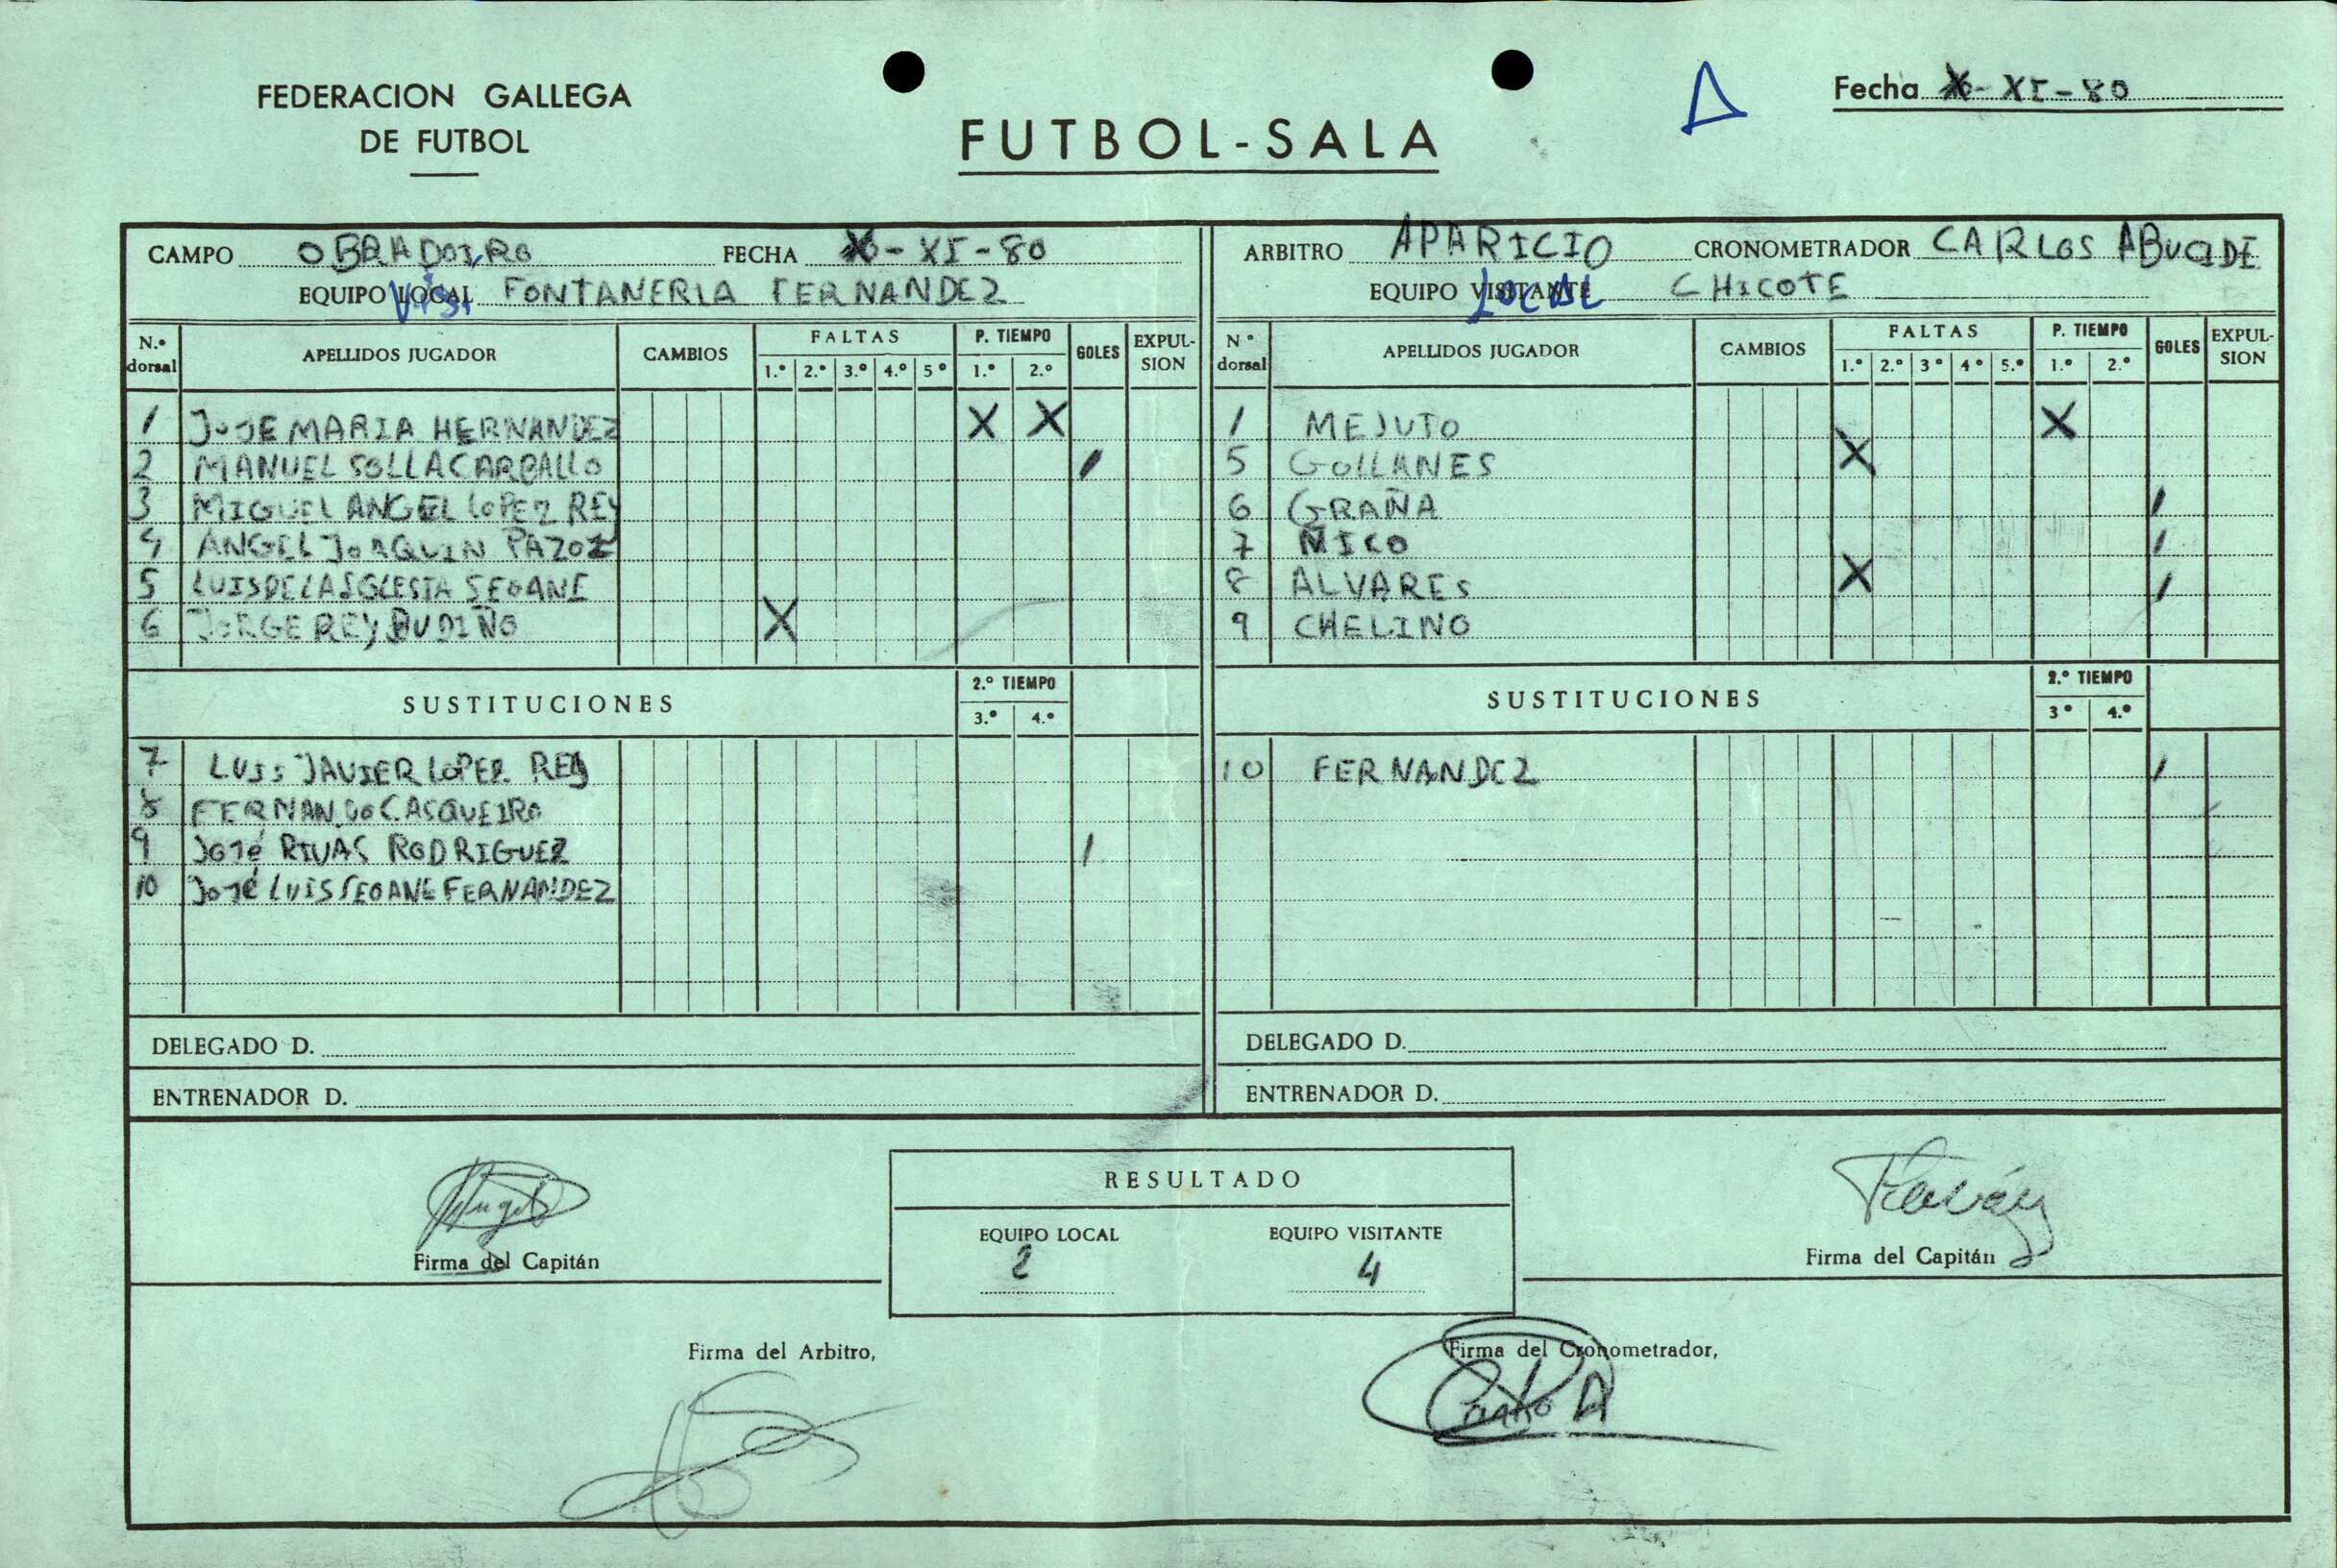 FEDERACION GALLEGA
DE FUTBOL
FUTBOL-SALA
Fecha - XI - 80
CAMPO OBRADOIRO FECHA - XI - 80
EQUIPO LOCAL Vis. FONTANERIA FERNANDEZ
N.º dorsal APELLIDOS JUGADOR CAMBIOS FALTAS 1.º 2.º 3.º 4.º 5º P. TIEMPO 1.º 2.º GOLES EXPUL-SION
1 JOSE MARIA HERNANDEZ X X
2 MANUEL SOLLA CARBALLO /
3 MIGUEL ANGEL LOPEZ REY
4 ANGEL JOAQUIN PAZOZ
5 LUIS DE LA IGLESIA SEOANE
6 JORGE REY BUDIÑO X
SUSTITUCIONES 2.º TIEMPO 3.º 4.º
7 LUIS JAVIER LOPEZ REY
8 FERNANDO CASQUEIRO
9 JOSÉ RIVAS RODRIGUEZ /
10 JOSÉ LUIS SEOANE FERNANDEZ
DELEGADO D.
ENTRENADOR D.
ARBITRO APARICIO CRONOMETRADOR CARLOS
EQUIPO VISITANTE LOCAL CHICOTE
Nº dorsal APELLIDOS JUGADOR CAMBIOS FALTAS 1.º 2.º 3º 4º 5.º P. TIEMPO 1.º 2.º GOLES EXPUL-SION
1 MEJUTO X
5 GOLLANES X
6 GRAÑA /
7 MICO /
8 ALVARES X /
9 CHELINO
SUSTITUCIONES 2.º TIEMPO 3º 4.º
10 FERNANDEZ /
DELEGADO D.
ENTRENADOR D.
Firma del Capitán
RESULTADO
EQUIPO LOCAL EQUIPO VISITANTE
2 4
Firma del Capitán
Firma del Arbitro,
Firma del Cronometrador,